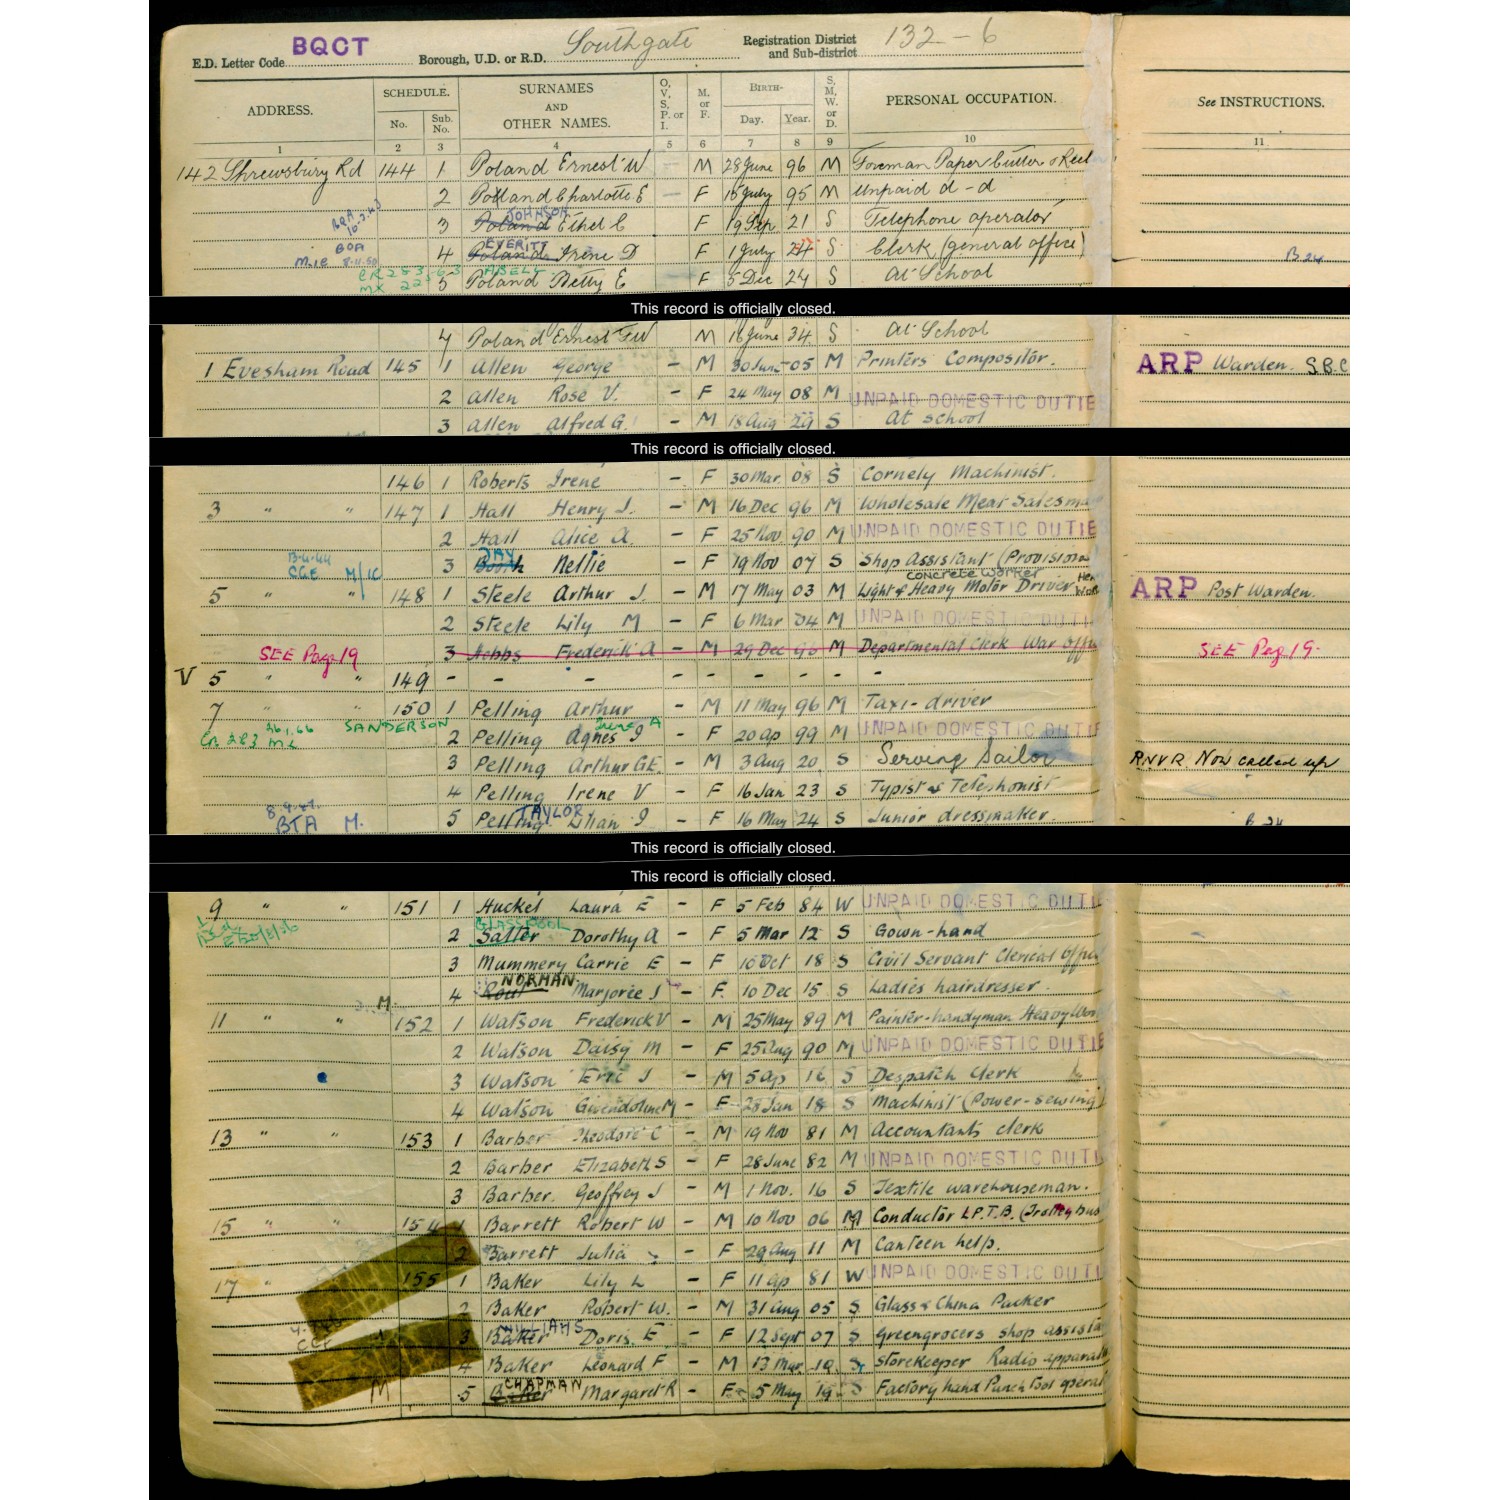 E.D. Letter Code BQCT Borough, U.D. or R.D. Southgate Registration District and Sub-district 132-6
ADDRESS. SCHEDULE. No. Sub. No. SURNAMES AND OTHER NAMES. O, V, S, P. or I. M. or F. BIRTH- Day. Year. S, M, W, or D. PERSONAL OCCUPATION. See INSTRUCTIONS.
1 2 3 4 5 6 7 8 9 10 11
142 Shrewsbury Rd 144 1 Poland Ernest W M 28 June 96 M Foreman Paper Cutter & Reel
2 Poland Charlotte E — F 15 July 95 M Unpaid d-d
JOHNSON
3 Poland Ethel C F 19 Sep 21 S Telephone operator
BOA EVERITT
M.IC 8-11-50 4 Poland Irene D F 1 July 24 S Clerk (general office) B 24
CR 283 ABELL
5 Poland Betty E F 5 Dec 24 S At School
This record is officially closed.
7 Poland Ernest F W M 16 June 34 S At School
1 Evesham Road 145 1 Allen George - M 30 June 05 M Printers Compositor. ARP Warden. S.B.C
2 Allen Rose V. - F 24 May 08 M UNPAID DOMESTIC DUTIES
3 Allen Alfred G. - M 18 Aug 29 S At school
This record is officially closed.
146 1 Roberts Irene - F 30 Mar 08 S Cornely Machinist.
3 " " 147 1 Hall Henry J. - M 16 Dec 96 M Wholesale Meat Salesma
2 Hall Alice A. - F 25 Nov 90 M UNPAID DOMESTIC DUTIE
B-4-44 DAY
CGE M/IC 3 Booth Nellie - F 19 Nov 07 S Shop Assistant (Provision
concrete worker
5 " " 148 1 Steele Arthur J. - M 17 May 03 M Light & Heavy Motor Driver ARP Post Warden.
2 Steele Lily M - F 6 Mar 04 M UNPAID DOMESTIC DUTI
SEE Page 19 3 Hebbs Frederick A - M 29 Dec 96 M Departmental Clerk War Offic SEE Pag 19.
V 5 " " 149 - - - - - - -
7 150 1 Pelling Arthur - M 11 May 96 M Taxi-driver
SANDERSON June A
Cr 283 26.1.66 2 Pelling Agnes J - F 20 ap 99 M UNPAID DOMESTIC DUTIE
3 Pelling Arthur G.E. - M 3 Aug 20 S Serving Sailor RNVR Now called up
4 Pelling Irene V - F 16 Jan 23 S Typist & Telephonist
TAYLOR
BTA M. 5 Pelling Lilian J - F 16 May 24 S Junior dressmaker. B 24
This record is officially closed.
This record is officially closed.
9 " " 151 1 Huckel Laura E - F 5 Feb 84 W UNPAID DOMESTIC DUTIE
GLASSPOOL
2 Salter Dorothy A - F 5 Mar 12 S Gown-hand
3 Mummery Carrie E - F 10 Oct 18 S Civil Servant Clerical Offic
NORMAN
M. 4 Rout Marjorie J - F. 10 Dec 15 S Ladies hairdresser.
11 " " 152 1 Watson Frederick V - M 25 May 89 M Painter-handyman Heavy Wor
2 Watson Daisy M - F 25 Aug 90 M UNPAID DOMESTIC DUTIE
3 Watson Eric J - M 5 ap 16 S Despatch Clerk
4 Watson Gwendoline M - F 28 Jan 18 S Machinist (Power-sewing)
13 " " 153 1 Barber Theodore C - M 19 Nov 81 M Accountants clerk
2 Barber Elizabeth S - F 28 June 82 M UNPAID DOMESTIC DUTI
3 Barber. Geoffrey J - M 1 Nov. 16 S Textile warehouseman.
15 " " 154 1 Barrett Robert W - M 10 Nov 06 M Conductor L.P.T.B. (Trolleybus
2 Barrett Julia - F 29 Aug 11 M Canteen help.
17 " 155 1 Baker Lily L - F 11 ap 81 W UNPAID DOMESTIC DUTI
2 Baker Robert W. - M 31 aug 05 S Glass & China Packer
WILLIAMS
CGE 3 Baker Doris E - F 12 Sept 07 S Greengrocers shop assista
4 Baker Leonard F - M 13 Mar 10 S storekeeper Radio apparat
CHAPMAN
M 5 Baker Margaret R - F 5 May 19 S Factory hand Punch Tool operat